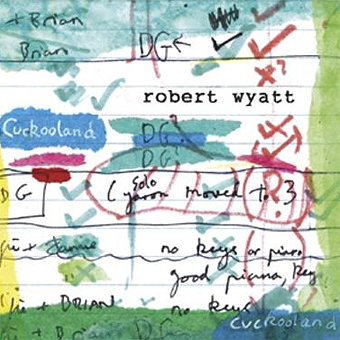 + Brian
Brian DG
robert wyatt
Cuckooland
DG?
DG?
DG (Solo
moved to ?3
+ Jamie no keys or piano
good piano, key
+ BRIAN no keys
+ Brian DG
Cuckooland